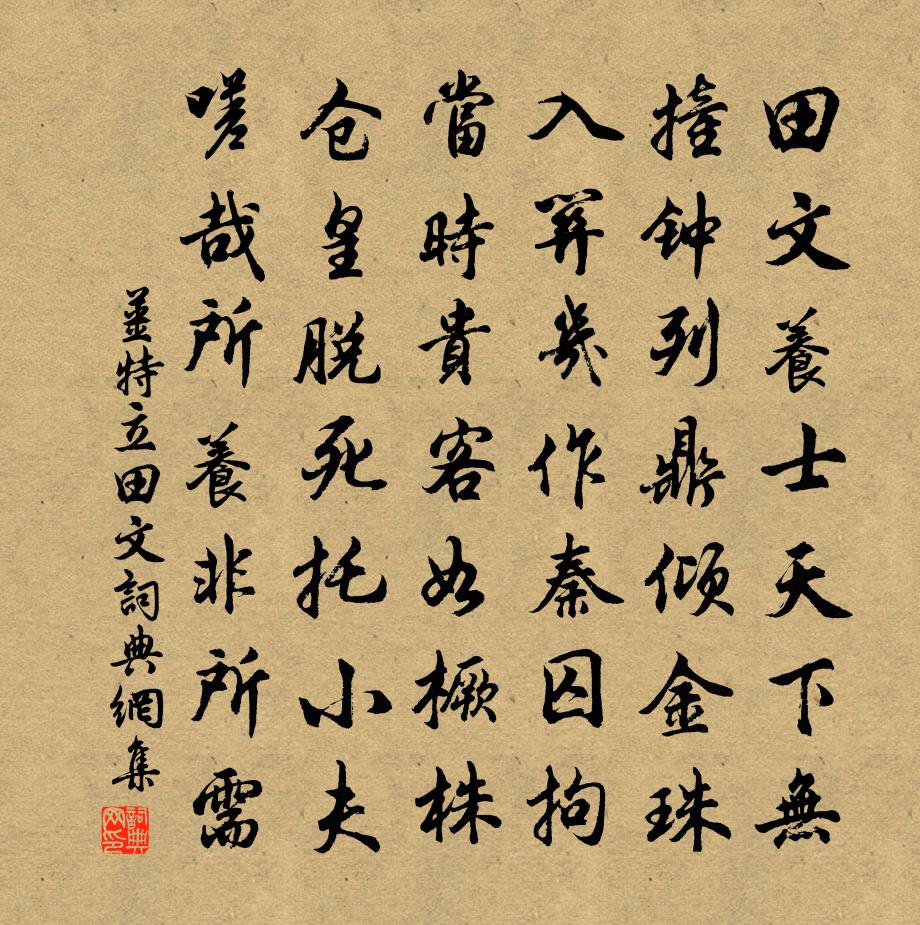 田文養士天下無
撞钟列鼎倾金珠
入關幾作秦囚拘
當時貴客如橛株
仓皇脱死托小夫
嗟哉所養非所需
薑特立田文詞典網集
詞典网印